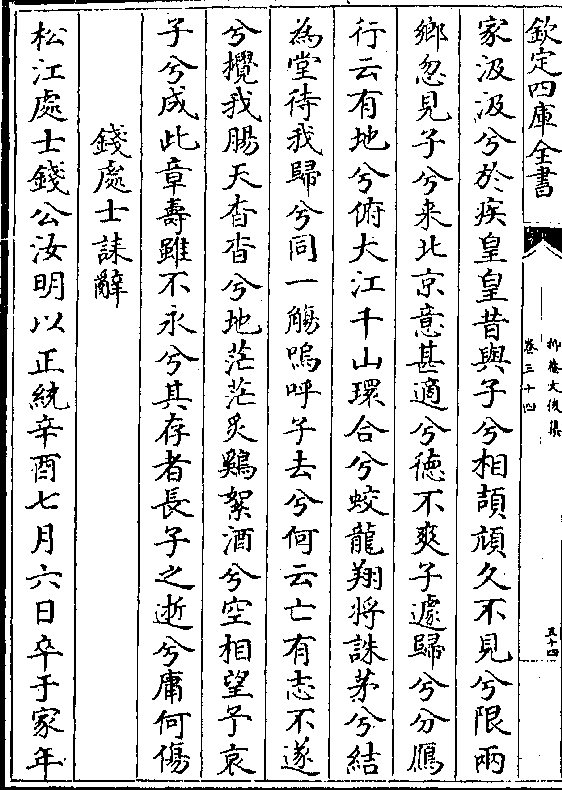 欽定四庫全書
抑菴文後集
卷三十四
五十四
家汲汲兮於疾皇皇昔與子兮相頡頏久不見兮限兩
鄉忽見子兮来北京意甚適兮徳不爽子遽歸兮分鴈
行云有地兮俯大江千山環合兮蛟龍翔将誅茅兮結
為堂待我歸兮同一觴嗚呼子去兮何云亡有志不遂
兮攪我腸天杳杳兮地茫茫炙鷄絮酒兮空相望予哀
子兮成此章壽雖不永兮其存者長子之逝兮庸何傷
錢處士誄辭
松江處士錢公汝明以正統辛酉七月六日卒于家年